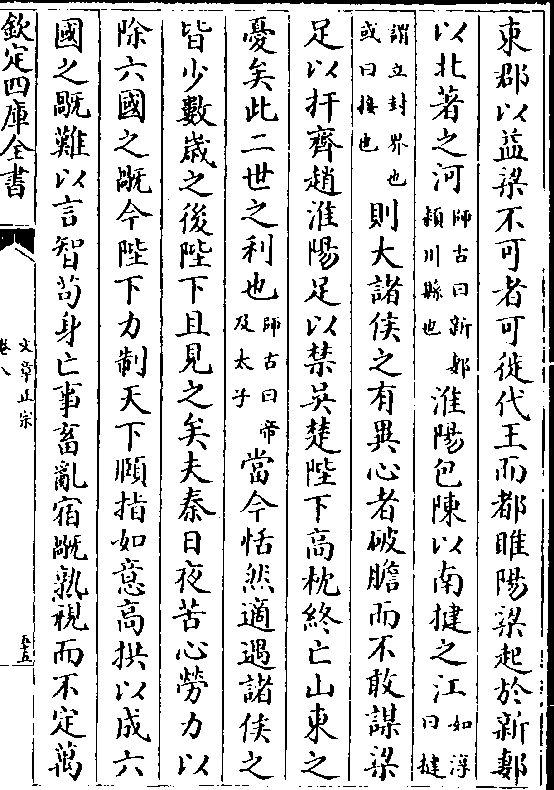 東郡以益梁不可者可徙代王而都睢陽梁起於新郪
以北著之河師古曰新郪潁川縣也淮陽包陳以南揵之江如淳曰揵
謂立封界也或曰接也則大諸侯之有異心者破膽而不敢謀梁
足以扞齊趙淮陽足以禁吳楚陛下高枕終亡山東之
憂矣此二世之利也師古曰帝及太子當今恬然適遇諸侯之
皆少數歳之後陛下且見之矣夫秦日夜苦心勞力以
除六國之旤今陛下力制天下頤指如意高拱以成六
國之旤難以言智苟身亡事畜亂宿旤孰視而不定萬
欽定四庫全書
文章正宗
卷八
五五